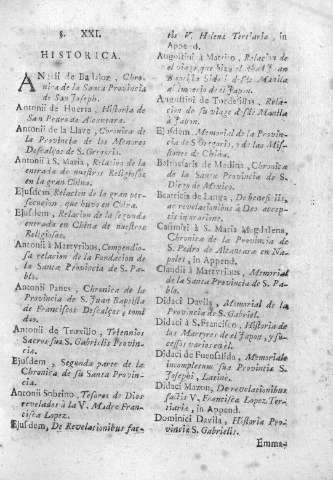 §. XXI.
HISTORICA.
Antonii de Huerta, Historia de
San Pedro de Alcantara.
Antonii de la Llave, Chronica de
la Provincia de los Menores
Descalços de S. Gregorio.
Antonii à S. Maria, Relacion de la
entrada de nuestros Religiosos
en la gran China.
Ejusdem Relacion de la gran per-
secucion, que huvo en China.
Ejusdem, Relacion de la segunda
entrada en China de nuestros
Religiosos.
Antonii à Martyribus, Compendio-
sa relacion de la Fundacion de
la Santa Provincia de S. Pa-
blo.
Antonii Panes, Chronica de la
Provincia de S. Juan Baptista
de Franciscos Descalços, tomi
duo.
Antonii de Truxillo,
Sacros sua S. Gabrielis Provin-
cia.
Ejusdem, Segunda parte de la
Chronica de su Santa Provin-
cia.
Antonii Sobrino, Tesoros de Dios
revelados à la V. Madre Fran-
cisca Lopez.
Ejusdem, De Revelationibus fac-
tis V. Helenæ Tertiaria, in
Append.
Augustini à Matrito, Relacion de
Augustini de Tordesillas, Rela-
cion de su viage desde Manila
à Japon.
Ejusdem, Memorial de la Provin-
cia de S. Gregorio, y de las Mis-
siones de China.
Balthasaris de Medina, Chronica
de la Santa Provincia de S.
Diego de Mexico.
Beatricis de Lanza, De beneficiis,
ac revelationibus à Deo accep-
tis
Casimiri à S. Maria Magdalena,
Chronica de la Provincia de
S. Pedro de Alcantara en Na-
poles, in Append.
Claudii à Martyribus, Memorial
de la Santa Provincia de S. Pa-
blo.
Didaci Davila, Memorial de la
Provincia de S. Gabriel.
Didaci à S. Francisco, Historia de
los Martyres de el Japon, y su-
cessos varios en èl.
Didaci de Fuensalida, Memoriale
incompletum sua Provincia S.
Josephi, Latinè.
Didaci Mazon, De revelationibus
factis V. Francisca Lopez Ter-
tiaria, in Append.
Dominici Davila, Historia Pro-
vincia S. Gabrielis.
Emma-